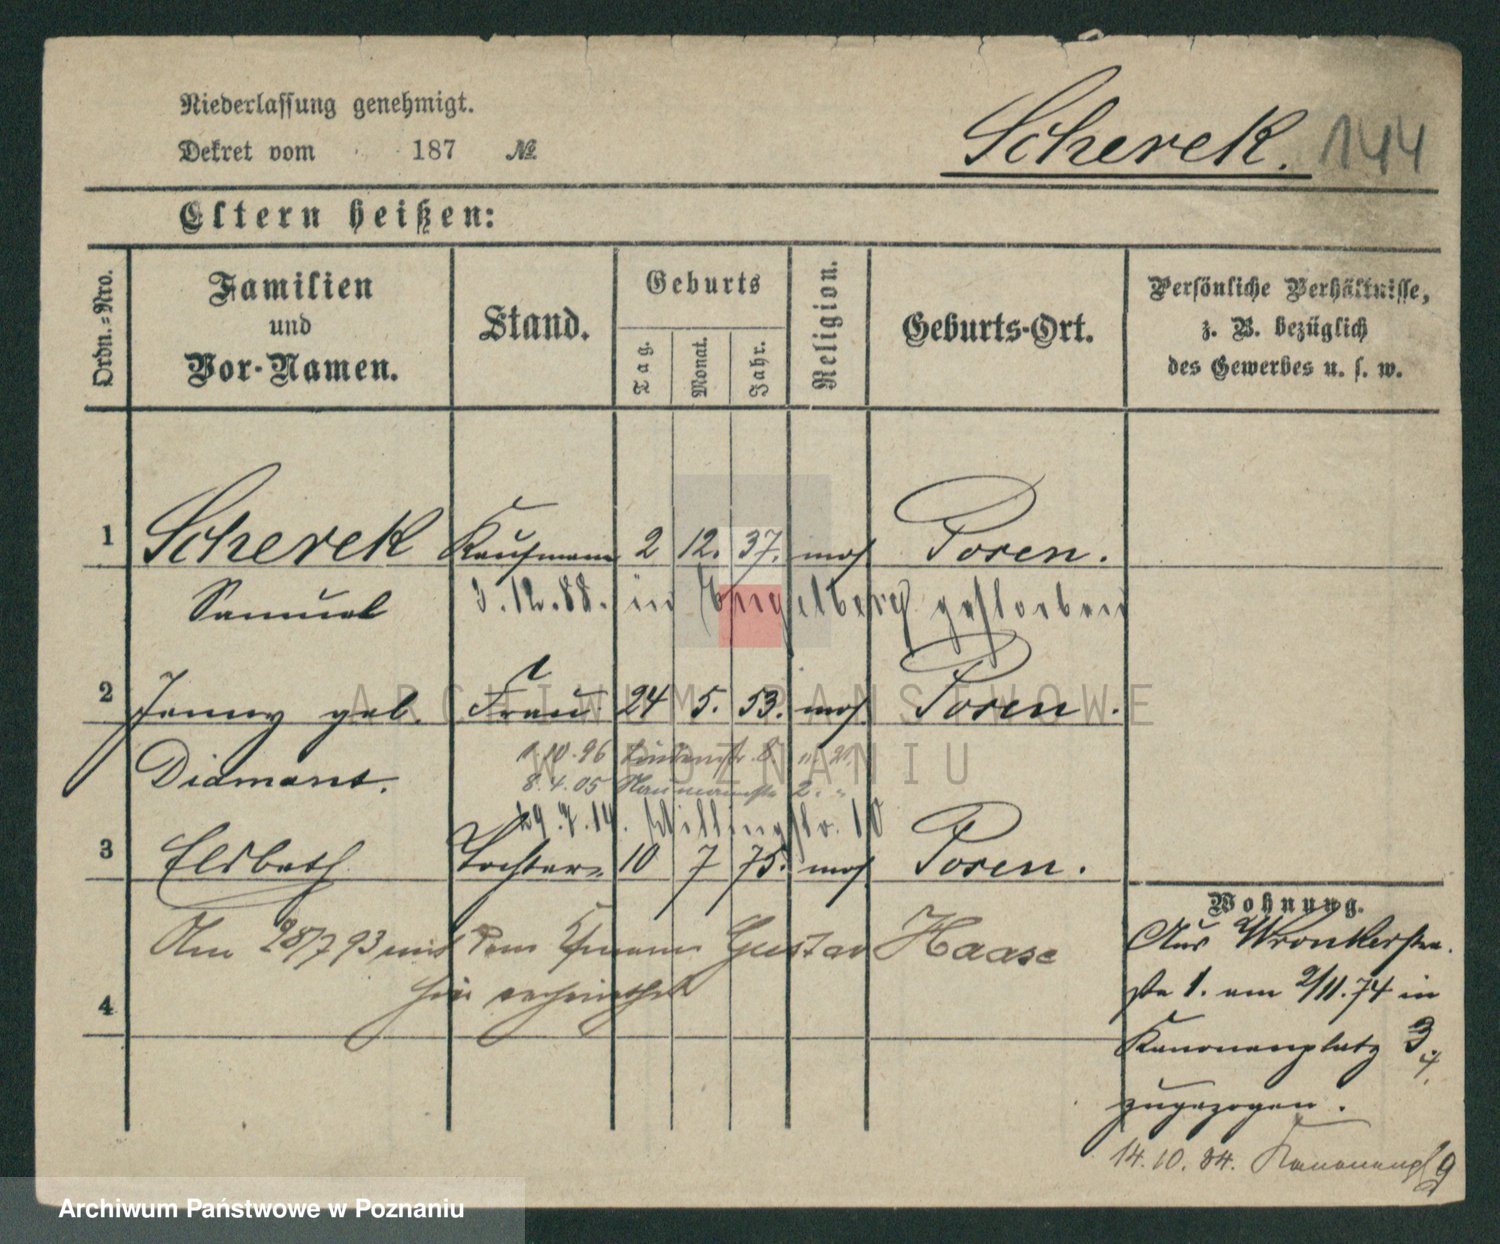 Niederlassung genehmigt.
Dekret vom 187 №
Scherek. 144
Eltern heißen:
Ordn.-Nro.
Familien
und
Vor-Namen.
Stand.
Geburts
Tag.
Monat.
Jahr.
Religion.
Geburts-Ort.
Persönliche Verhältnisse,
z. B. bezüglich
des Gewerbes u. s. w.
1 Scherek Kaufmann 2 12. 37. mos Posen.
Samuel 3.12.88. in Engelberg gestorben
2 Jenny geb. Frau 24 5. 53. mos Posen.
Diamant.
1.10.96
8.4.05 Naumannstr 2.
29.7.14. 10
3 Elsbeth Tochter 10 7 75. mos Posen.
Am 28/7 93 mit dem Kfmann Gustav Haase
hier verheirathet
4
Wohnung.
Aus Wronkerstra
ße 1. am 2/11.74 in
Kanonenplatz 3
zugezogen.
14.10.84. Kanonenpl 9
ARCHIWUM PAŃSTWOWE
W POZNANIU
Archiwum Państwowe w Poznaniu